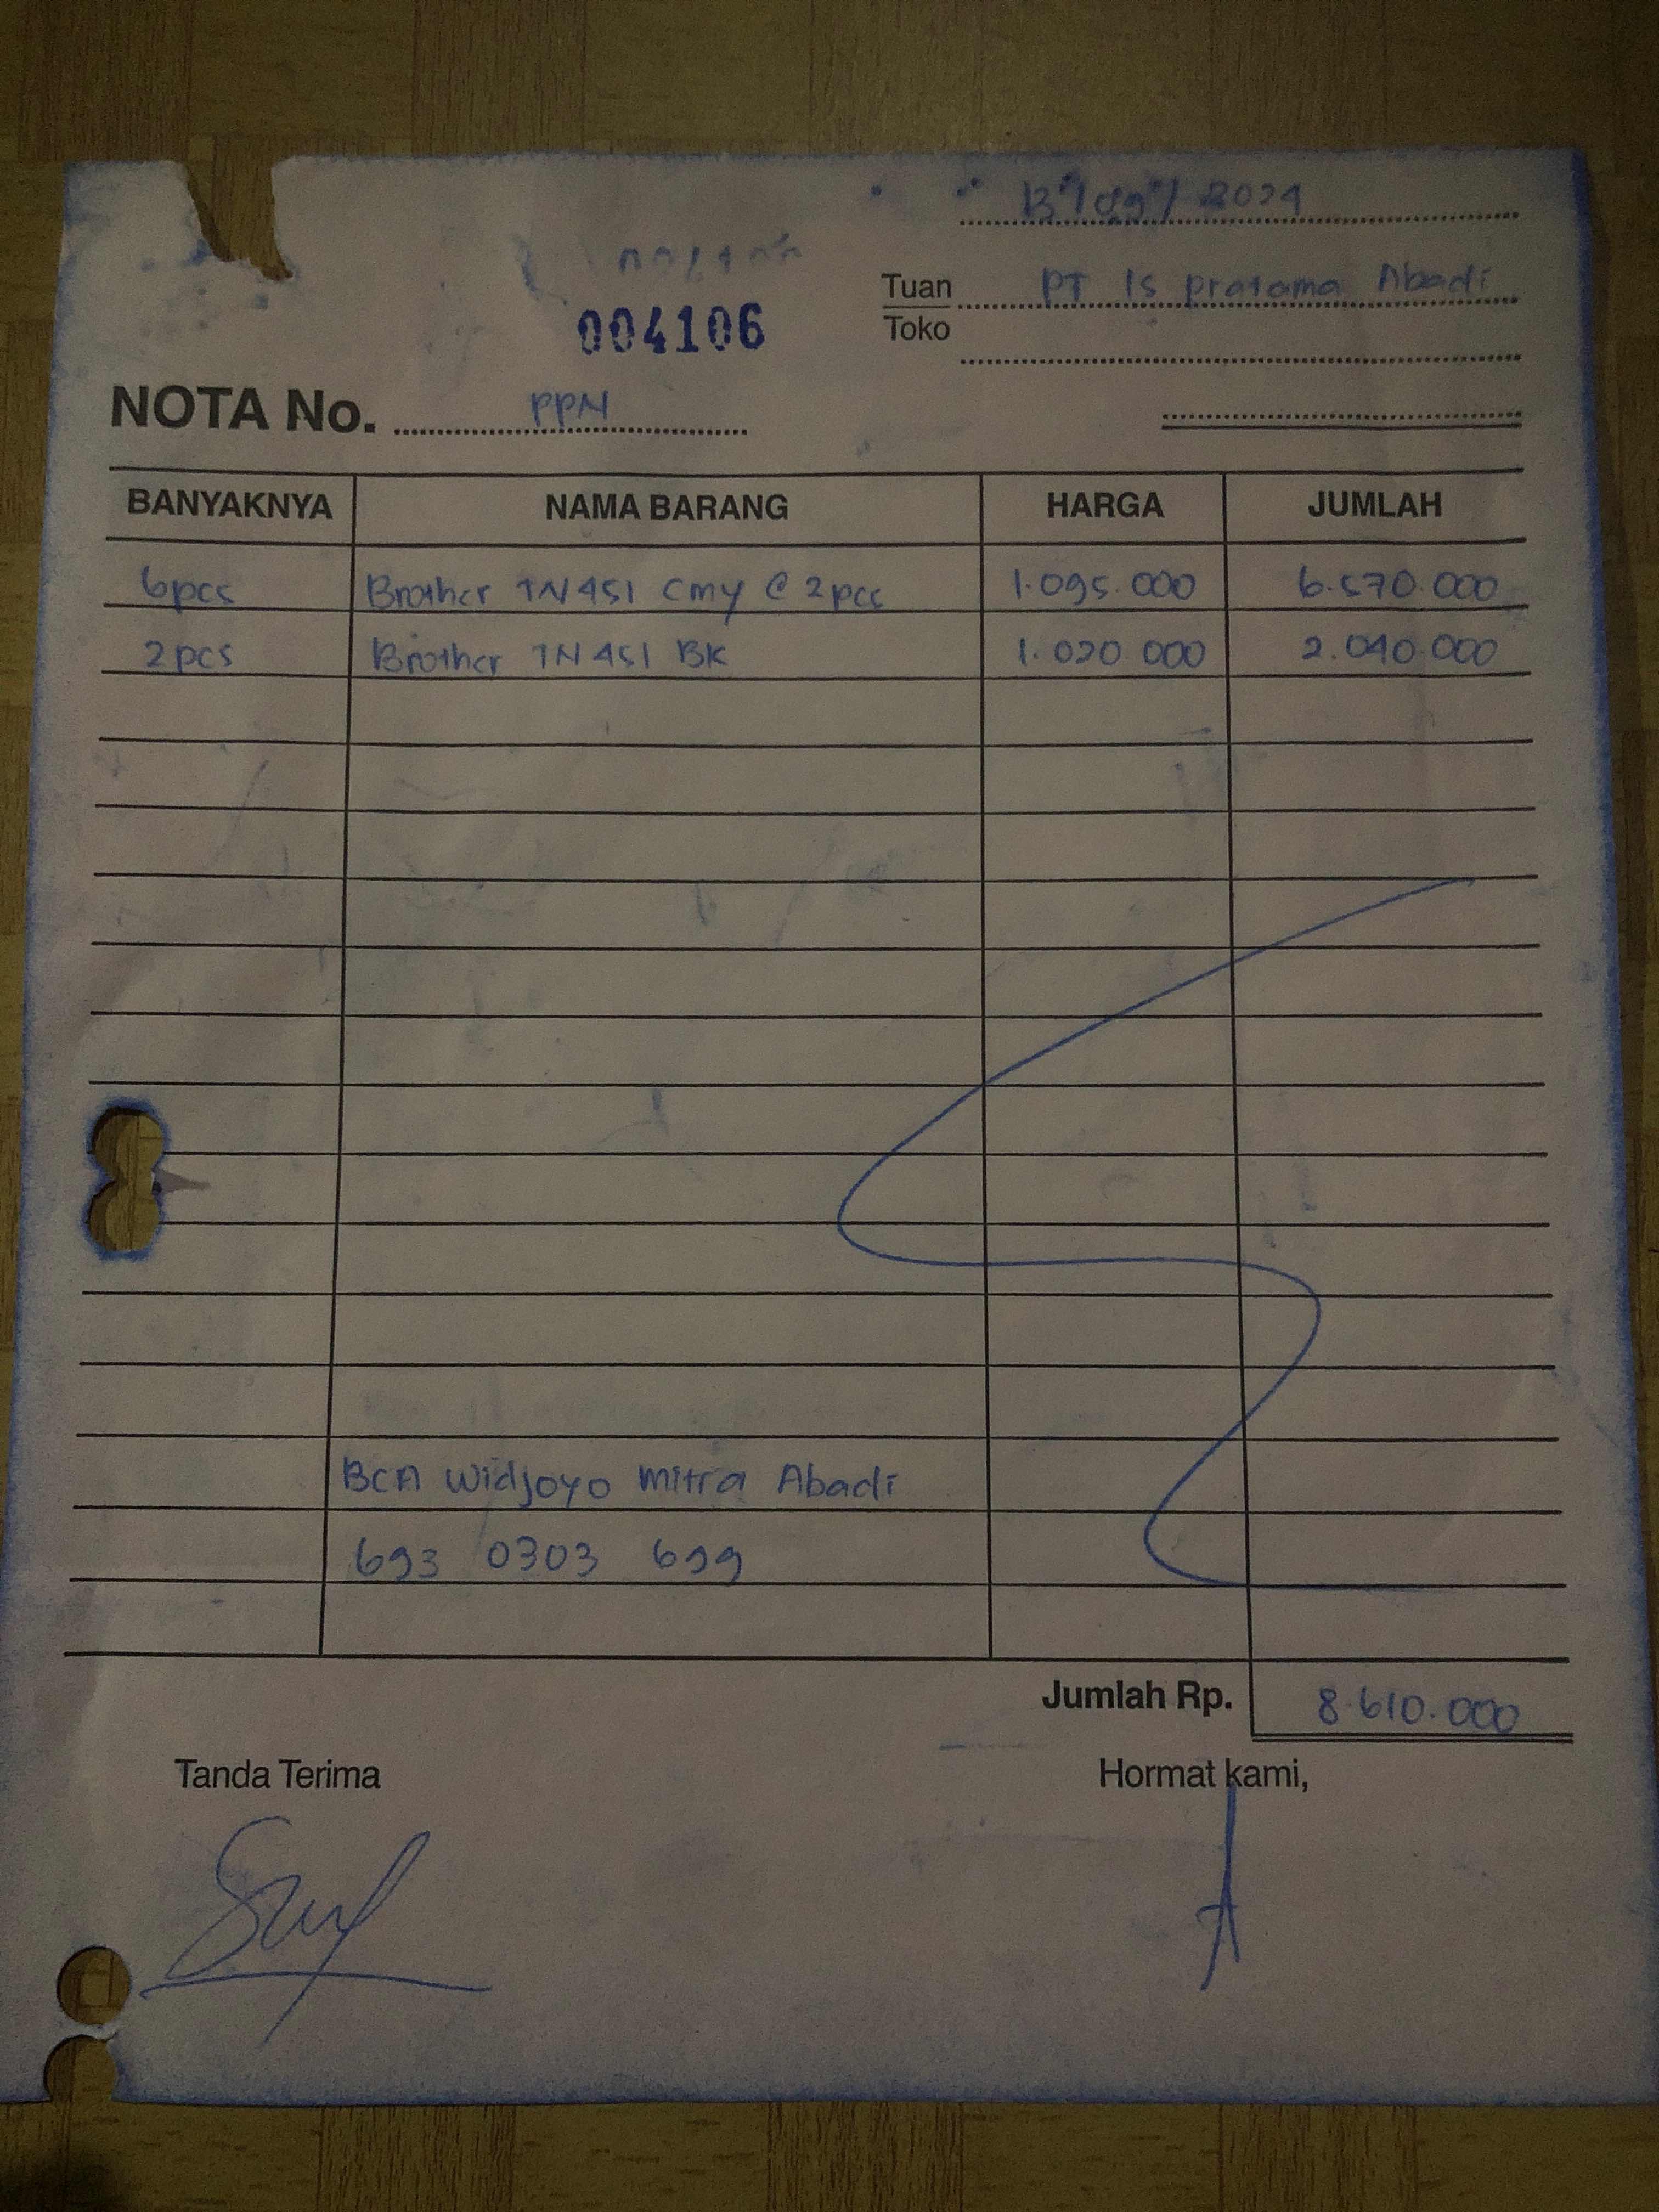 13/09/2024
Tuan PT IS Pratama Abadi
Toko
004106
NOTA No. PPN
BANYAKNYA NAMA BARANG HARGA JUMLAH
6pcs Brother TN451 CMY @ 2pcs 1.095.000 6.570.000
2pcs Brother TN451 BK 1.020.000 2.040.000
BCA Widjoyo Mitra Abadi
693 0303 699
Jumlah Rp. 8.610.000
Tanda Terima Hormat kami,